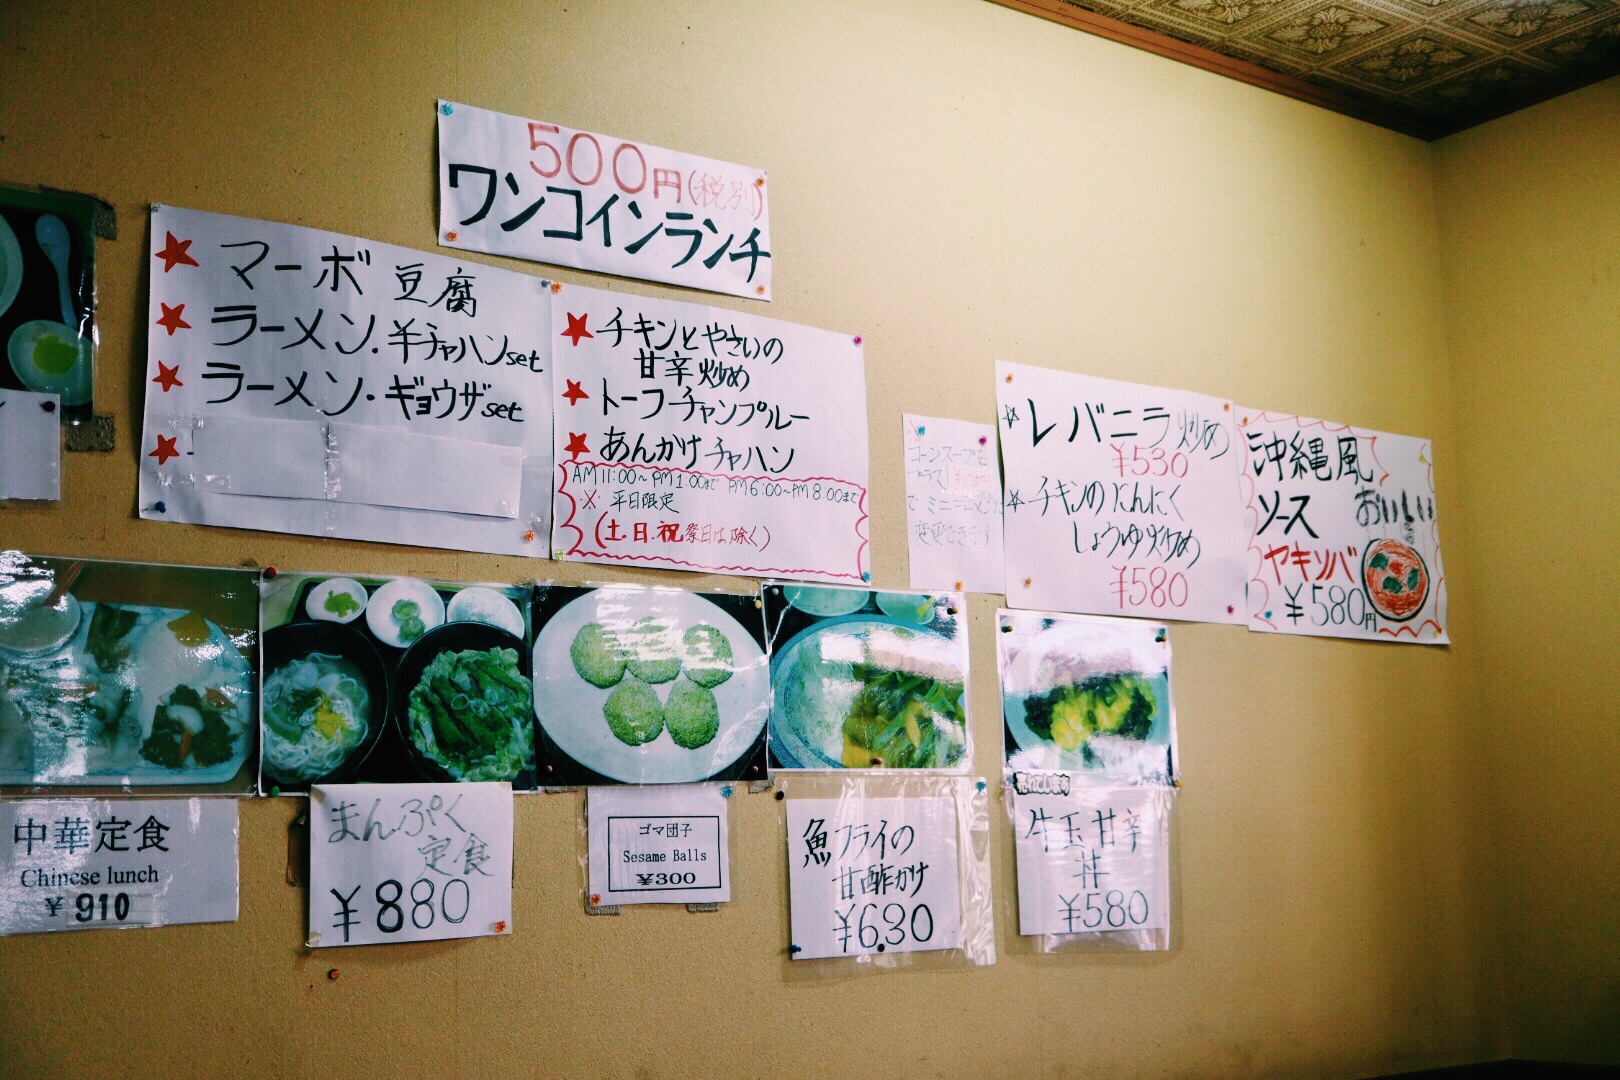 500円(税別)
ワンコインランチ
★マーボ豆腐
★ラーメン.半チャハンset
★ラーメン・ギョウザset
★チキンとやさいの
甘辛炒め
★トーフチャンプルー
★あんかけチャハン
AM11:00~PM1:00まで PM6:00~PM8:00まで
※平日限定
(土.日.祝祭日は除く)
※
コーンスープを
プラス
でミニラーメンに
変更できます
☆レバニラ炒め
¥530
☆チキンのにんにく
しょうゆ炒め
¥580
沖縄風
ソース
おいしい
ヤキソバ
¥580円
中華定食
Chinese lunch
¥910
まんぷく
定食
¥880
ゴマ団子
Sesame Balls
¥300
魚フライの
甘酢かけ
¥630
牛玉甘辛
丼
¥580